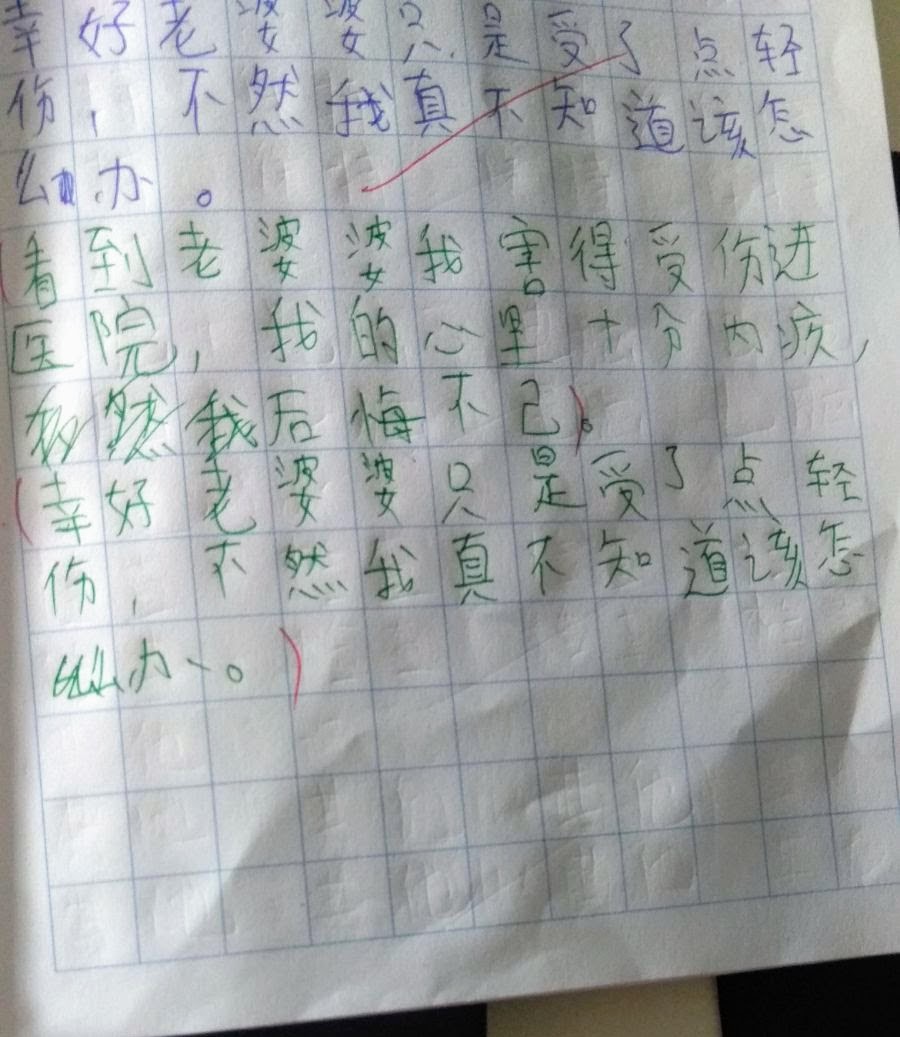 幸好老婆婆只是受了点轻
伤，不然我真不知道该怎
么办。
(看到老婆婆我害得受伤进
医院，我的心里十分内疚，
然我后悔不己)。
(幸好老婆婆只是受了点轻
伤，不然我真不知道该怎
么办、。)